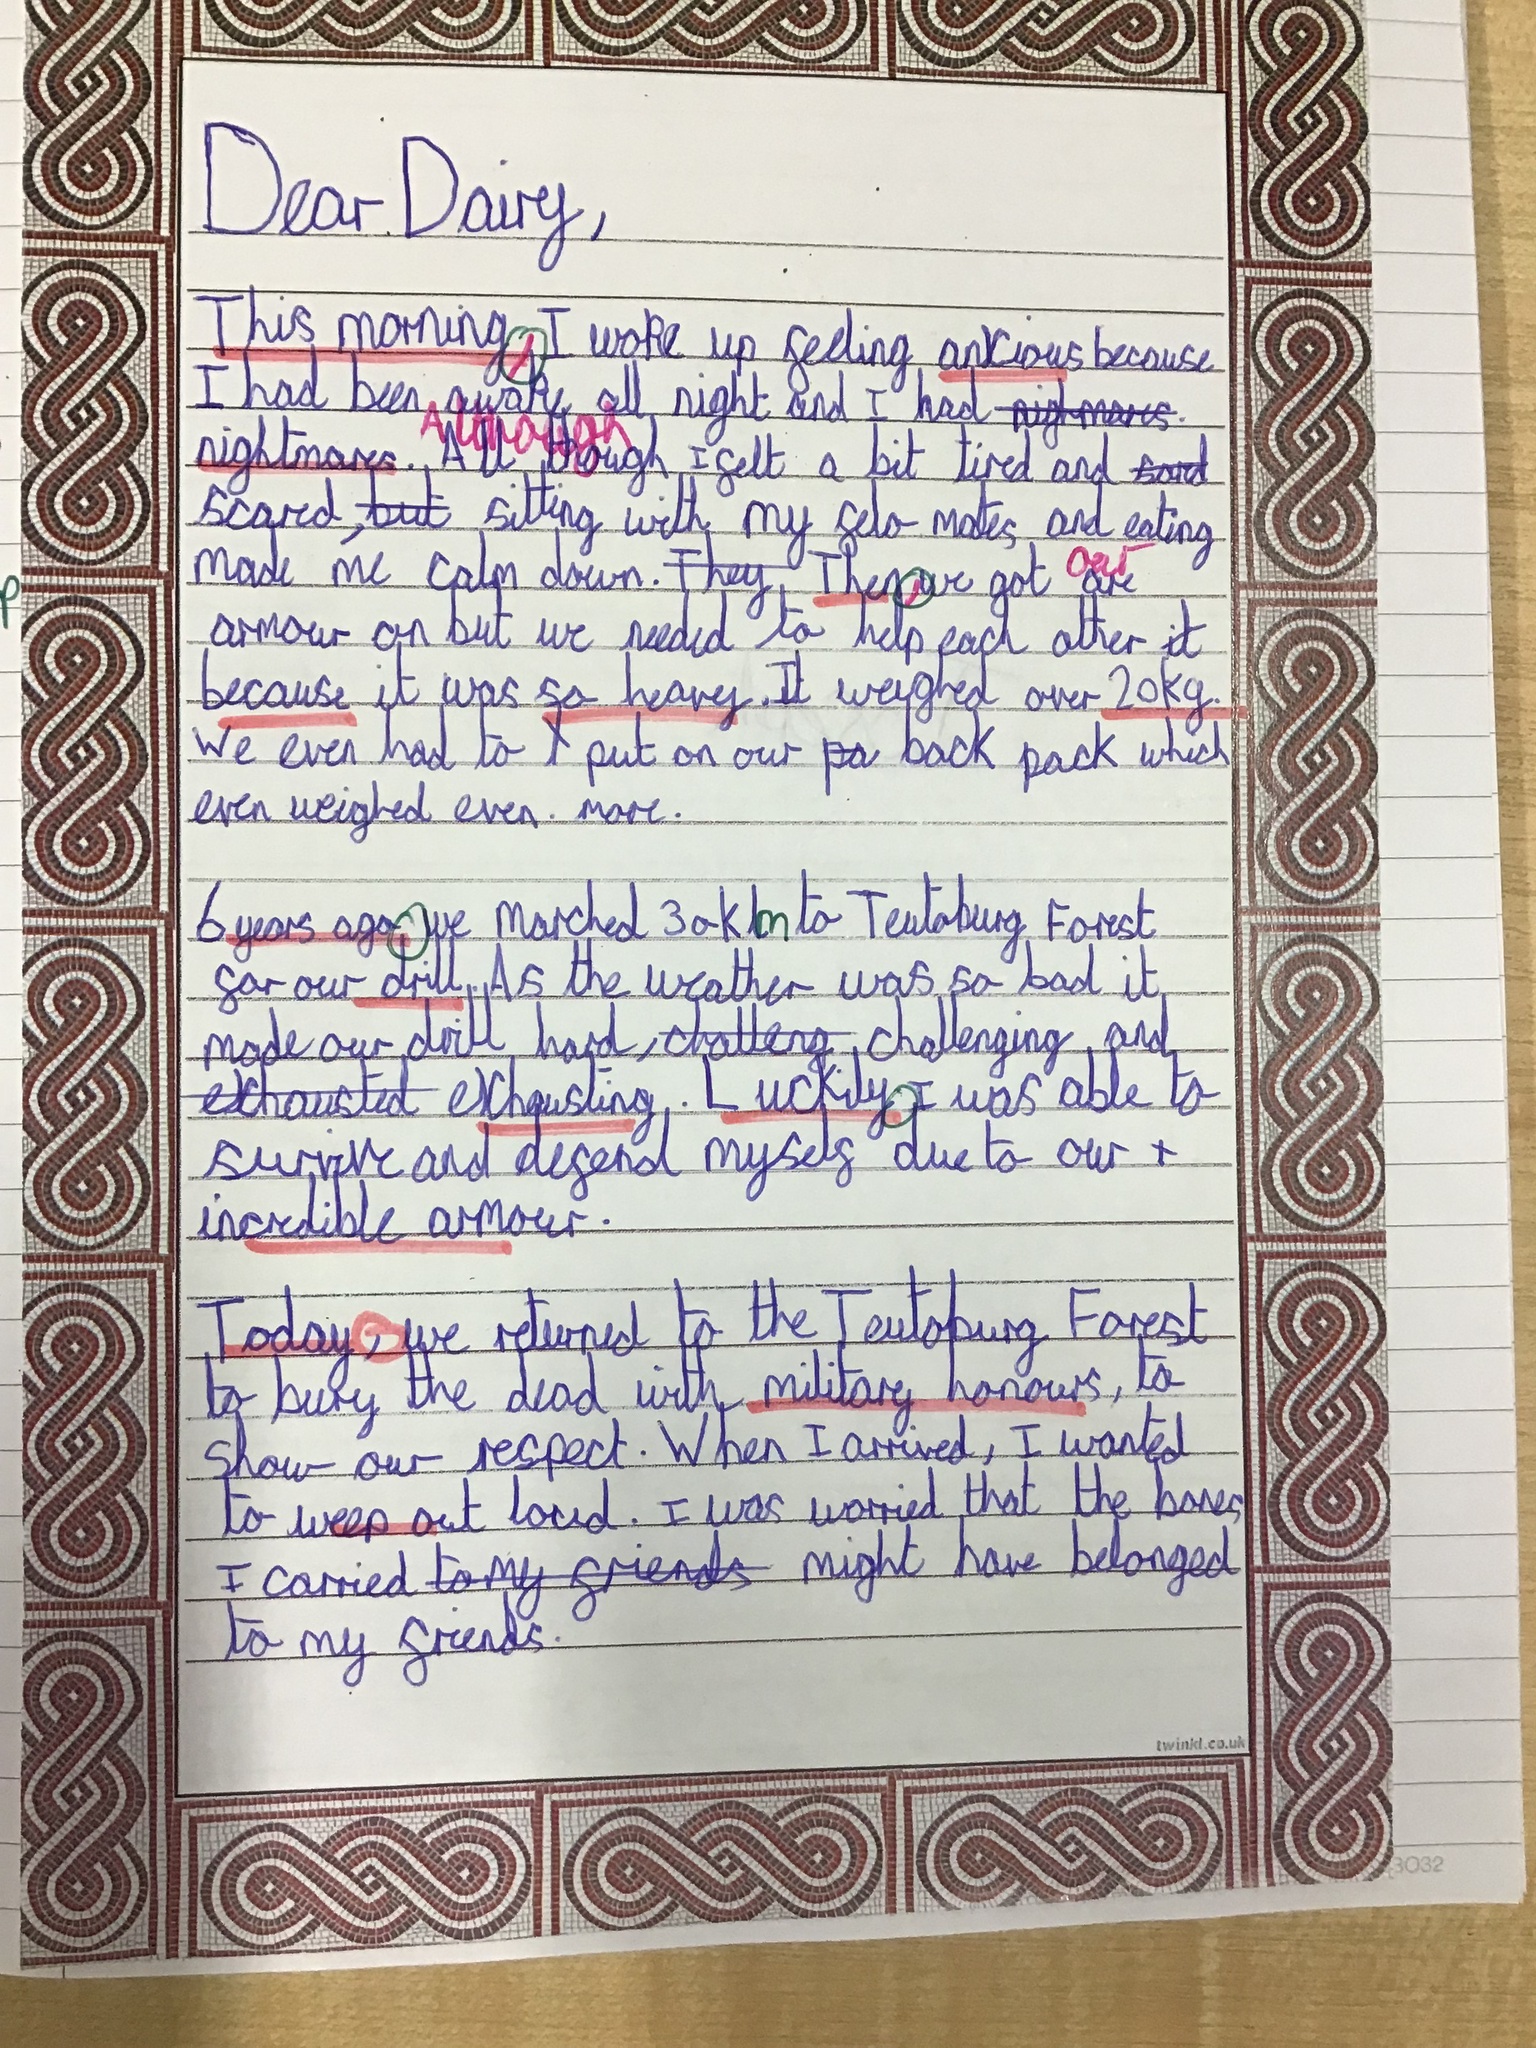 Dear Dairy,
This morning, I woke up feeling ankious because
I had been awake all night and I had nighmares.
Although
nightmares. All though I felt a bit tired and sord
scared, but sitting with my felo mates and eating
our
made me calm down. They Then, we got are
armour on but we needed to help each other it
because it was so heavy. It weighed over 20kg.
We even had to put on our pa back pack which
even weighed even. more.
6 years ago, we marched 30Klm to Teutoburg Forest
for our drill. As the weather was so bad it
made our drill hard, challeng challenging and
exhausted exhausting. Luckily, I was able to
survive and defend myself due to our
incredible armour.
Today, we returned to the Teutoburg Forest
to bury the dead with military honours, to
show our respect. When I arrived, I wanted
to weep out loud. I was worried that the bones
I carried to my friends might have belonged
to my friends.
twinkl.co.uk
3032
p